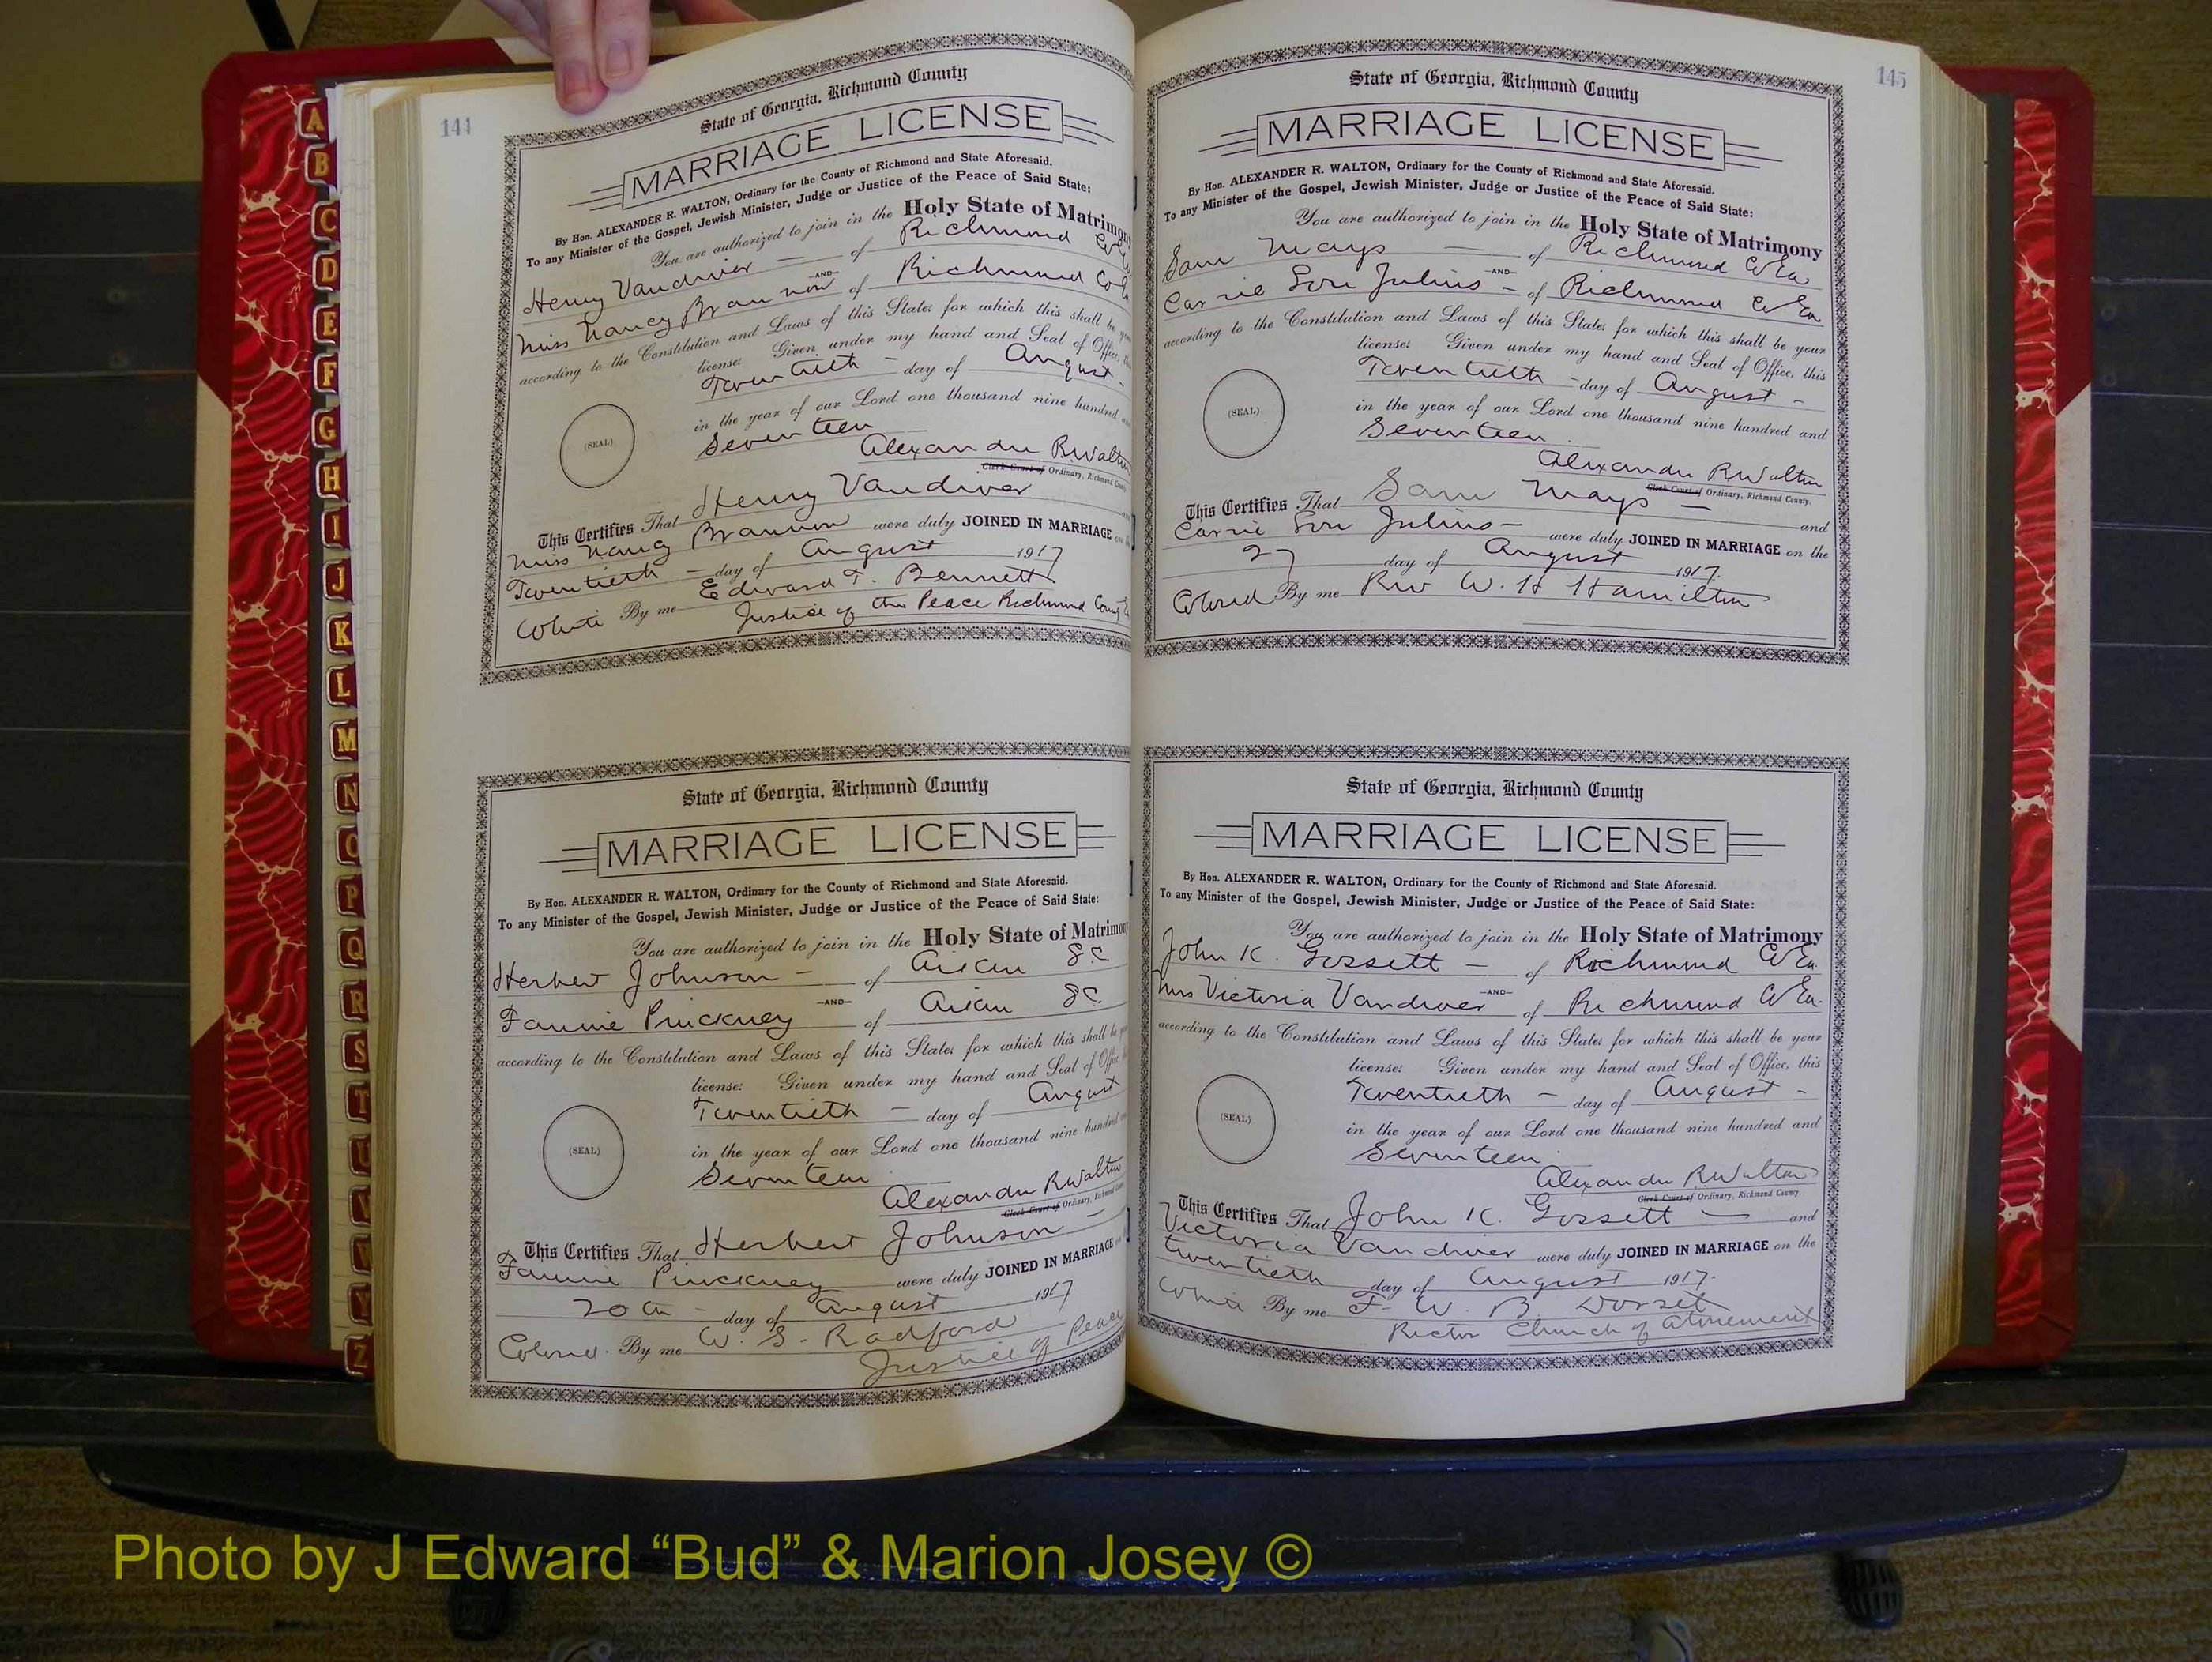 A
B
C
D
E
F
G
H
I
J
K
L
M
N
O
P
Q
R
S
T
Z
144
State of Georgia, Richmond County
MARRIAGE LICENSE
By Hon. ALEXANDER R. WALTON, Ordinary for the County of Richmond and State Aforesaid.
To any Minister of the Gospel, Jewish Minister, Judge or Justice of the Peace of Said State:
You are authorized to join in the Holy State of Matrimony
Henry Vandiver — of Richmond Co
—AND—
Miss Nancy Brannon of Richmond Co
according to the Constitution and Laws of this State; for which this shall be
license: Given under my hand and Seal of Office,
Twentieth — day of August -
in the year of our Lord one thousand nine hundred
Seventeen
(SEAL)
Alexander R Walton
Clerk Court of Ordinary, Richmond County.
This Certifies That Henry Vandiver
Miss Nancy Brannon were duly JOINED IN MARRIAGE on
Twentieth — day of August 1917
White By me Edward T. Bennett
Justice of the Peace Richmond
State of Georgia, Richmond County
MARRIAGE LICENSE
By Hon. ALEXANDER R. WALTON, Ordinary for the County of Richmond and State Aforesaid.
To any Minister of the Gospel, Jewish Minister, Judge or Justice of the Peace of Said State:
You are authorized to join in the Holy State of Matrimony
Herbert Johnson — of Aiken SC
—AND—
Fannie Pinckney of Aiken SC.
according to the Constitution and Laws of this State; for which this shall be
license: Given under my hand and Seal of Office
Twentieth — day of August
in the year of our Lord one thousand nine hundred
Seventeen
(SEAL)
Alexander R Walton
Clerk Court of Ordinary, Richmond County.
This Certifies That Herbert Johnson —
Fannie Pinckney were duly JOINED IN MARRIAGE
20th - day of August 1917
Colored. By me W. S. Radford
Justice of Peace
145
State of Georgia, Richmond County
MARRIAGE LICENSE
By Hon. ALEXANDER R. WALTON, Ordinary for the County of Richmond and State Aforesaid.
To any Minister of the Gospel, Jewish Minister, Judge or Justice of the Peace of Said State:
You are authorized to join in the Holy State of Matrimony
Sam Mays — of Richmond Co Ga
—AND—
Carrie Lou Julius — of Richmond Co Ga
according to the Constitution and Laws of this State; for which this shall be your
license: Given under my hand and Seal of Office, this
Twentieth - day of August -
in the year of our Lord one thousand nine hundred and
Seventeen
(SEAL)
Alexander R Walton
Clerk Court of Ordinary, Richmond County.
This Certifies That Sam Mays — and
Carrie Lou Julius — were duly JOINED IN MARRIAGE on the
27 day of August 1917.
Colored By me Rev W. H Hamilton
State of Georgia, Richmond County
MARRIAGE LICENSE
By Hon. ALEXANDER R. WALTON, Ordinary for the County of Richmond and State Aforesaid.
To any Minister of the Gospel, Jewish Minister, Judge or Justice of the Peace of Said State:
You are authorized to join in the Holy State of Matrimony
John K. Gossett — of Richmond Co Ga.
—AND—
Victoria Vandiver of Richmond Co Ga.
according to the Constitution and Laws of this State; for which this shall be your
license: Given under my hand and Seal of Office, this
Twentieth - day of August -
in the year of our Lord one thousand nine hundred and
Seventeen
(SEAL)
Alexander R Walton
Clerk Court of Ordinary, Richmond County.
This Certifies That John K. Gossett — and
Victoria Vandiver were duly JOINED IN MARRIAGE on the
twentieth day of August 1917.
White By me F. W. B. Dorset
Rector Church of Atonement
Photo by J Edward “Bud” & Marion Josey ©